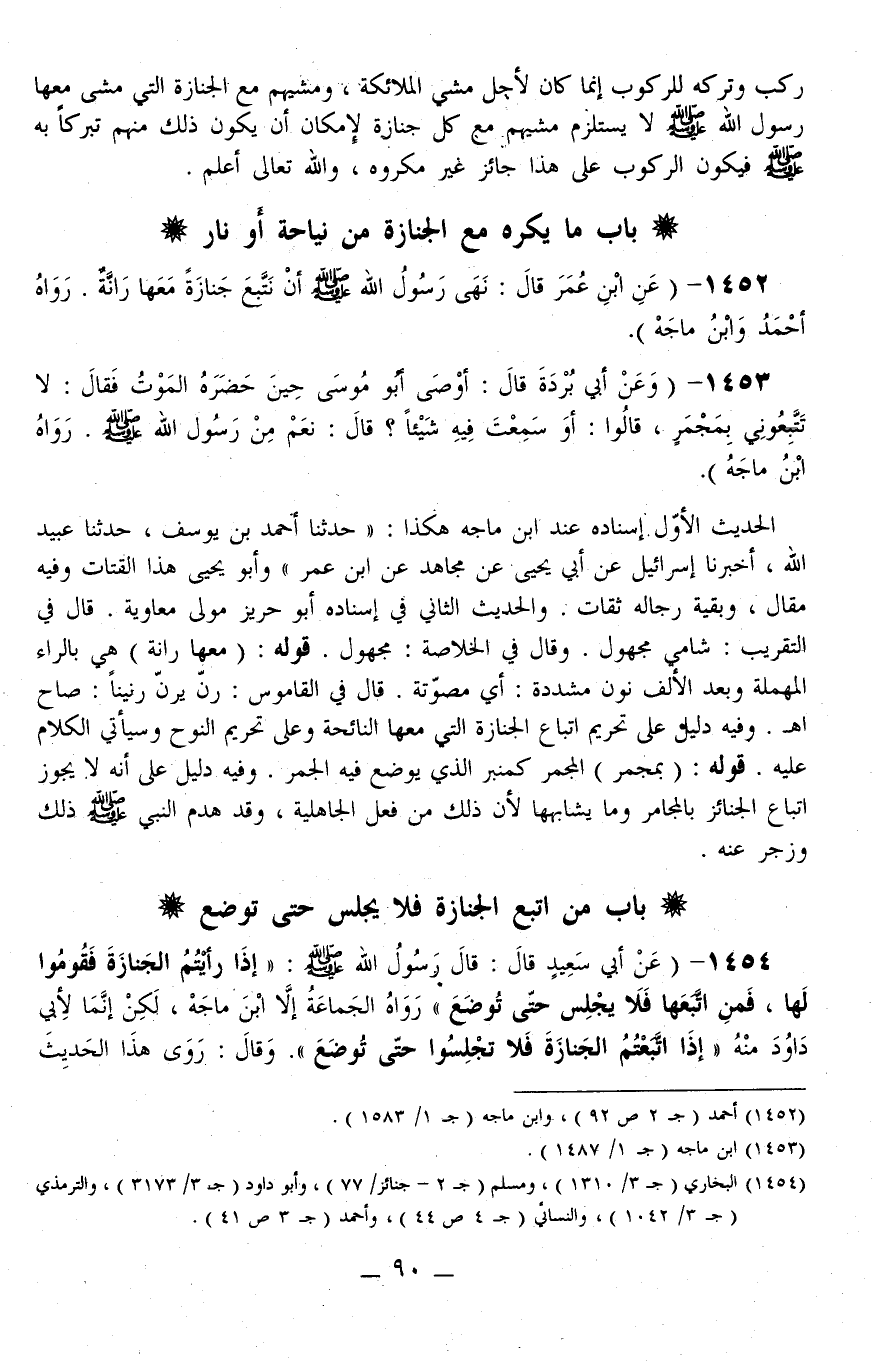 ركب وتركه للركوب إنما كان لأجل مشي الملائكة ، ومشيهم مع الجنازة التي مشى معها
رسول الله ﷺ لا يستلزم مشيهم مع كل جنازة لإمكان أن يكون ذلك منهم تبركاً به
ﷺ فيكون الركوب على هذا جائز غير مكروه ، والله تعالى أعلم .
❋ باب ما يكره مع الجنازة من نياحة أَو نار ❋
١٤٥٢- ( عَنِ ابْنِ عُمَرَ قالَ : نَهَى رَسُولُ الله ﷺ أنْ نَتَّبِعَ جَنازَةً مَعَها رَانَّةٌ . رَوَاهُ
أحْمَدُ وَابْنُ ماجَهْ ).
١٤٥٣- ( وَعَنْ أبي بُرْدَةَ قالَ : أوْصَى أبُو مُوسَى حِينَ حَضَرَهُ المَوْتُ فَقالَ : لا
تَتَّبِعُونِي بِمَجْمَرٍ ، قالُوا : أوَ سَمِعْتَ فِيهِ شَيْئاً ؟ قالَ : نعَمْ مِنْ رَسُول الله ﷺ . رَوَاهُ
ابْنُ ماجَهُ ).
الحديث الأوّل إسناده عند ابن ماجه هكذا : « حدثنا أحمد بن يوسف ، حدثنا عبيد
الله ، أخبرنا إسرائيل عن أبي يحيى عن مجاهد عن ابن عمر » وأبو يحيى هذا القتات وفيه
مقال ، وبقية رجاله ثقات . والحديث الثاني في إسناده أبو حريز مولى معاوية . قال في
التقريب : شامي مجهول . وقال في الخلاصة : مجهول . قوله : ( معها رانة ) هي بالراء
المهملة وبعد الألف نون مشددة : أي مصوّتة . قال في القاموس : رنّ يرنّ رنيناً : صاح
اهـ . وفيه دليل على تحريم اتباع الجنازة التي معها النائحة وعلى تحريم النوح وسيأتي الكلام
عليه . قوله : ( بمجمر ) المجمر كمنبر الذي يوضع فيه الجمر . وفيه دليل على أنه لا يجوز
اتباع الجنائز بالمجامر وما يشابهها لأن ذلك من فعل الجاهلية ، وقد هدم النبي ﷺ ذلك
وزجر عنه .
❋ باب من اتبع الجنازة فلا يجلس حتى توضع ❋
١٤٥٤- ( عَنْ أبي سَعِيدٍ قالَ : قالَ رَسُولُ الله ﷺ : « إذَا رأيْتُمُ الجَنازَةَ فَقُومُوا
لَها ، فَمنِ اتَّبَعَها فَلَا يجْلِس حتّى تُوضَعَ » رَوَاهُ الجَماعَةُ إلَّا ابْنَ ماجَهْ ، لَكِنْ إنَّمَا لِأبي
دَاوُدَ منْهُ « إذَا اتَّبَعْتُمُ الجَنازَةَ فَلا تجْلِسُوا حتّى تُوضَعَ ». وَقالَ : رَوَى هذَا الحَديثَ
(١٤٥٢) أحمد ( جـ ٢ ص ٩٢ ) ، وابن ماجه ( جـ ١/ ١٥٨٣ ) .
(١٤٥٣) ابن ماجه ( جـ ١/ ١٤٨٧ ) .
(١٤٥٤) البخاري ( جـ ٣/ ١٣١٠ ) ، ومسلم ( جـ ٢ - جنائز/ ٧٧ ) ، وأبو داود ( جـ ٣/ ٣١٧٣ ) ، والترمذي
( جـ ٣/ ١٠٤٢ ) ، والنسائي ( جـ ٤ ص ٤٤ ) ، وأحمد ( جـ ٣ ص ٤١ ) .
_ ٩٠ _